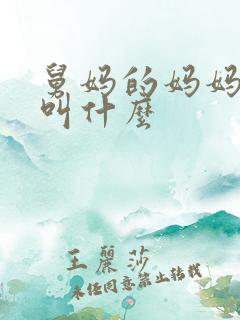 舅妈的妈妈
叫什麼
王麗莎
未经同意禁止转载